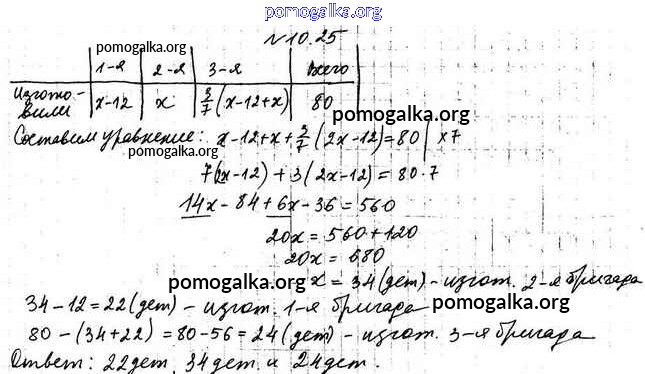 pomogalka.org
№10.25
pomogalka.org
1-я 2-я 3-я Всего
Изгото-
вили x-12 x 3/7(x-12+x) 80
pomogalka.org
Составим уравнение: x-12+x+3/7(2x-12)=80 | ×7
pomogalka.org
7(2x-12)+3(2x-12)=80·7
14x-84+6x-36=560
20x=560+120
20x=680
pomogalka.org
x=34(дет)-изгот. 2-я бригада
34-12=22(дет)-изгот. 1-я бригада
pomogalka.org
80-(34+22)=80-56=24(дет)-изгот. 3-я бригада
Ответ: 22дет, 34дет. и 24дет.